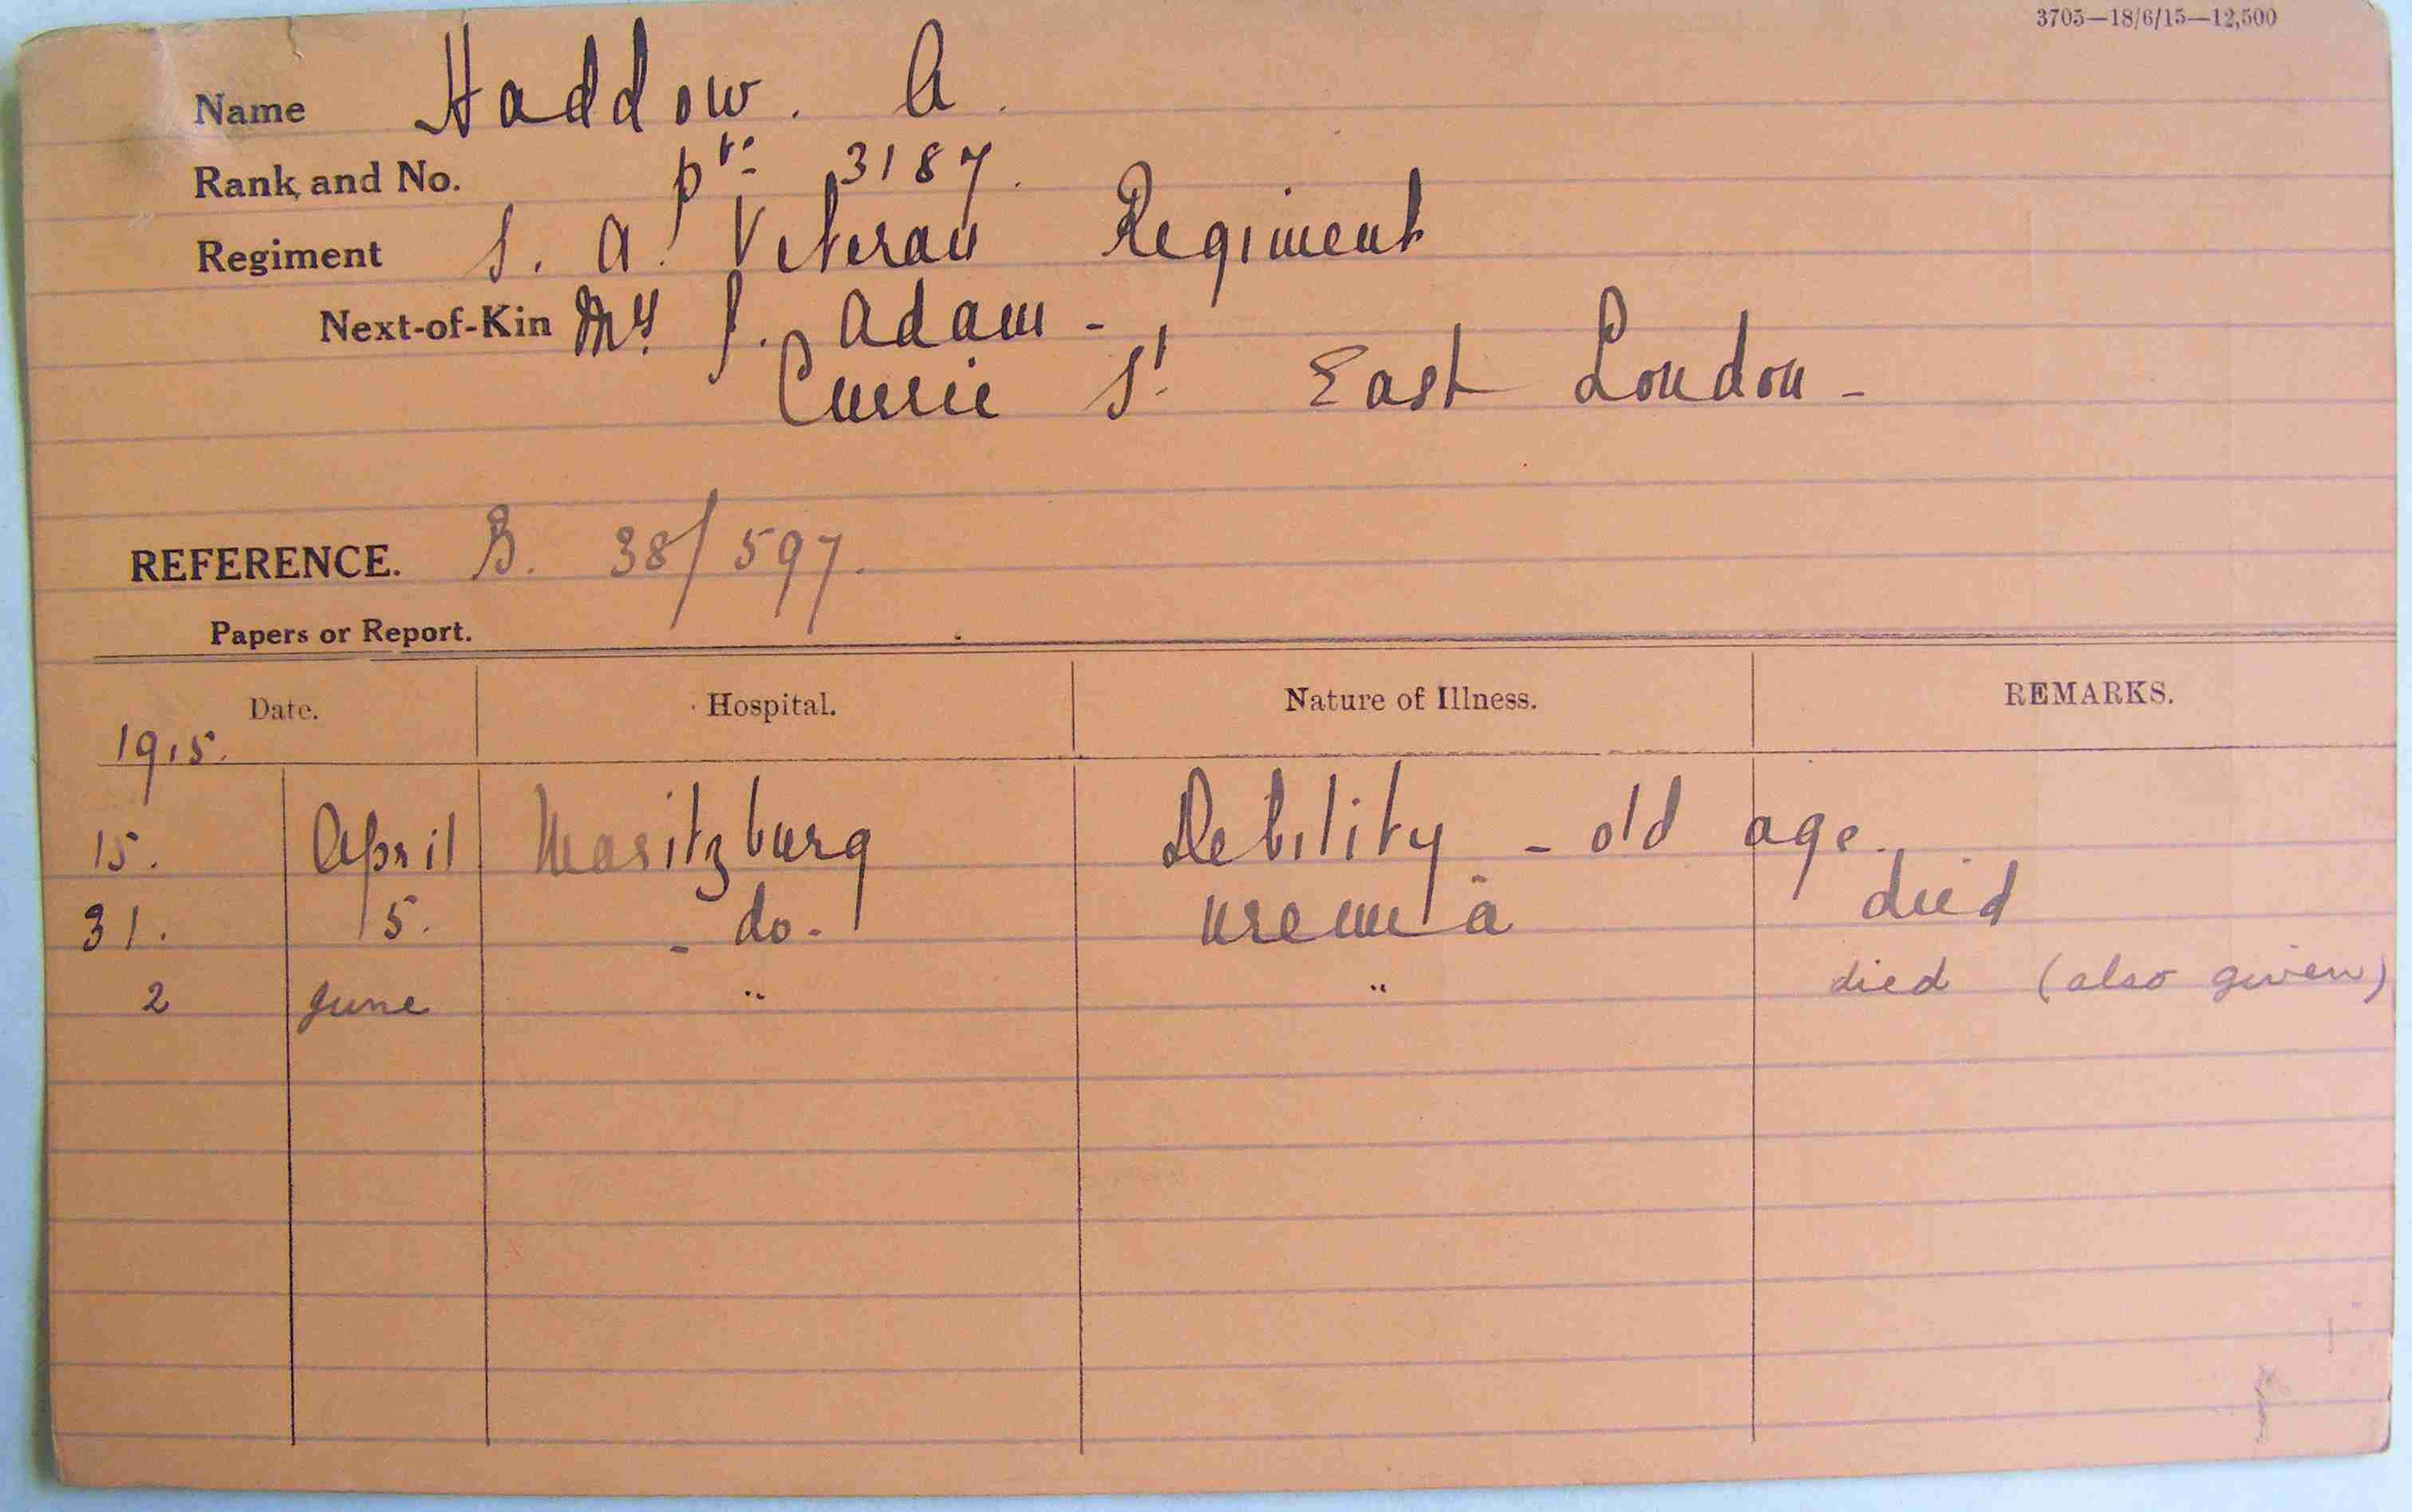 3705—18/6/15—12,500
Name Haddow. A.
Rank and No. Pte. 3187.
Regiment S. A. Veteran Regiment
Next-of-Kin Mrs. J. Adam -
Currie St. East London -
REFERENCE. B. 38/597.
Papers or Report.
Date. Hospital. Nature of Illness. REMARKS.
1915.
15. April Maritzburg Debility - old age.
31. 5. - do - Uremia died
2 June " " died (also given)